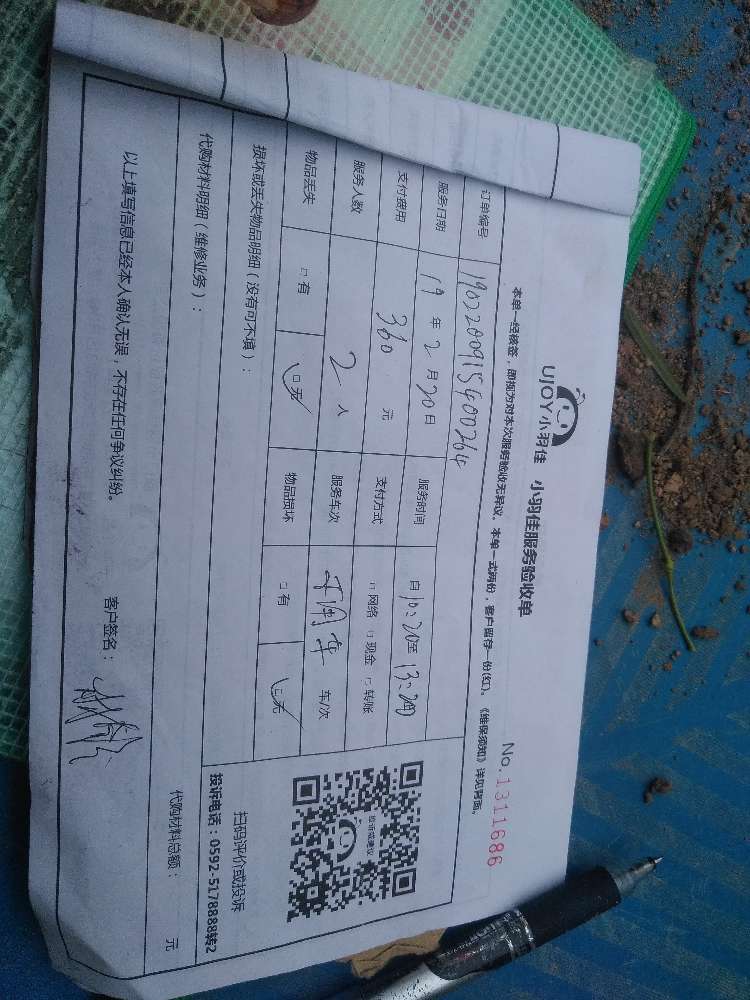 UJOY小羽佳 小羽佳服务验收单 No.1311686
本单一经核签，即视为对本次服务验收无异议。本单一式两份，客户留存一份(红)。《维保须知》详见背面。
订单编号 190220091540026
服务日期 19年2月20日 服务时间 自10:20至13:20
支付费用 360元 支付方式 □网络 □现金 □转账
服务人数 2人 服务车次 不用车 车/次
物品丢失 □有 □无 物品损坏 □有 □无
损坏或丢失物品明细（没有可不填）：
投诉或建议
扫码评价或投诉
投诉电话：0592-5178888转2
代购材料明细（维修业务）：
代购材料总额： 元
以上填写信息已经本人确认无误，不存在任何争议纠纷。 客户签名：